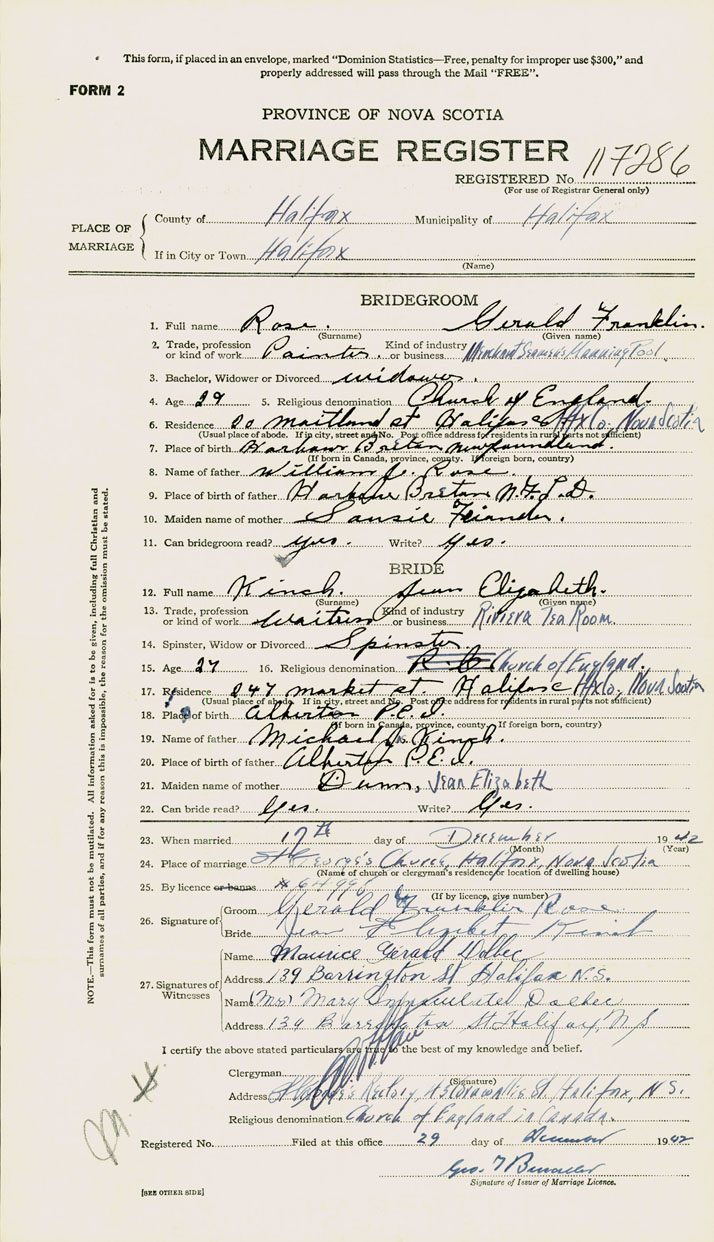 This form, if placed in an envelope, marked "Dominion Statistics—Free, penalty for improper use $300," and
properly addressed will pass through the Mail "FREE".
FORM 2
PROVINCE OF NOVA SCOTIA
MARRIAGE REGISTER
REGISTERED No. 117286
(For use of Registrar General only)
PLACE OF MARRIAGE
County of Halifax Municipality of Halifax
If in City or Town Halifax
(Name)
BRIDEGROOM
1. Full name Rose. Gerald Franklin.
(Surname) (Given name)
2. Trade, profession or kind of work Painter. Kind of industry or business Merchant Seamen's Manning Pool.
3. Bachelor, Widower or Divorced widower.
4. Age 29 5. Religious denomination Church of England.
6. Residence 20 maitland st Halifax Hfx Co, Nova Scotia
(Usual place of abode. If in city, street and No. Post office address for residents in rural parts not sufficient)
7. Place of birth Harbour Breton newfoundland.
(If born in Canada, province, county. If foreign born, country)
8. Name of father William J. Rose.
9. Place of birth of father Harbour Breton N.F.L.D.
10. Maiden name of mother
11. Can bridegroom read? yes. Write? yes.
BRIDE
12. Full name Kinch. Jean Elizabeth.
(Surname) (Given name)
13. Trade, profession or kind of work Waitress Kind of industry or business Riviera Tea Room.
14. Spinster, Widow or Divorced Spinster
15. Age 27 16. Religious denomination R.C. Church of England.
17. Residence 247 market st. Halifax Hfx Co, Nova Scotia
(Usual place of abode. If in city, street and No. Post office address for residents in rural parts not sufficient)
18. Place of birth Alberton P.E.I.
(If born in Canada, province, county, country. If foreign born, country)
19. Name of father Michael J. Kinch.
20. Place of birth of father Alberton P.E.I.
21. Maiden name of mother Dunn, Jean Elizabeth
22. Can bride read? Yes. Write? Yes.
23. When married 17th day of December 1942
(Month) (Year)
24. Place of marriage St George's Church, Halifax, Nova Scotia
(Name of church or clergyman's residence or location of dwelling house)
25. By licence or banns # 64996
(If by licence, give number)
26. Signature of
Groom Gerald Franklin Rose
Bride Jean Elizabeth Kinch
27. Signatures of Witnesses
Name Maurice Gerard Dolbec
Address 139 Barrington St Halifax N.S.
Name (Mrs) Mary Immaculate Dolbec
Address 139 Barrington St Halifax, N S
I certify the above stated particulars are true to the best of my knowledge and belief.
Clergyman
(Signature)
Address St George's Rectory, 45 Cornwallis St, Halifax, N.S.
Religious denomination Church of England in Canada.
Registered No. Filed at this office 29 day of December 1942
Geo.
Signature of Issuer of Marriage Licence.
[SEE OTHER SIDE]
NOTE.—This form must not be mutilated. All information asked for is to be given, including full Christian and
surnames of all parties, and if for any reason this is impossible, the reason for the omission must be stated.